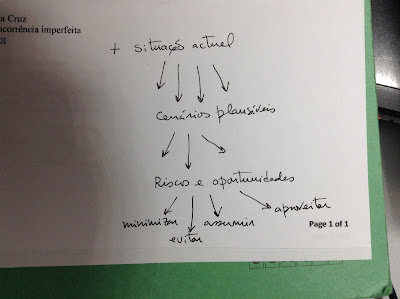 a Cruz
ncorrência imperfeita
+ situação actual
Cenários plausíveis
Riscos e oportunidades
minimizar assumir aproveitar
evitar
Page 1 of 1